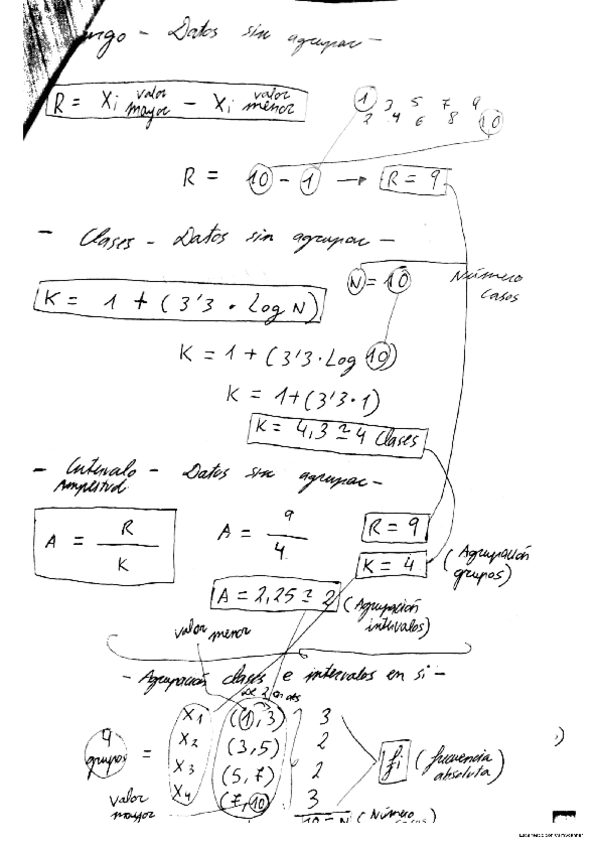 ngo - Datos sin agrupar -
R = Xi valor mayor - Xi valor menor
1 3 5 7 9
2 4 6 8 10
R = 10 - 1 → R = 9
- Clases - Datos sin agrupar -
N = 10 Número casos
K = 1 + (3'3 · Log N)
K = 1 + (3'3 · Log 10)
K = 1 + (3'3 · 1)
K = 4,3 ≃ 4 Clases
- Intervalo - Datos sin agrupar -
Amplitud
A = R / K
A = 9 / 4
R = 9
K = 4 (Agrupación grupos)
A = 2,25 ≃ 2 (Agrupación intervalos)
valor menor
- Agrupación clases e intervalos en sí -
de 2 en
X1 (1, 3) 3
X2 (3, 5) 2
X3 (5, 7) 2
X4 (7, 10) 3
4 grupos =
fi (frecuencia absoluta)
valor mayor
10 = N (Número